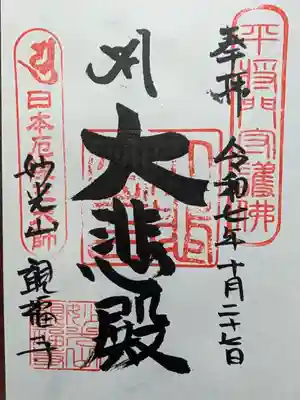 平将門守護佛
奉拝 令和七年十月二十七日
大悲殿
日本厄除大師
妙光山 観福寺